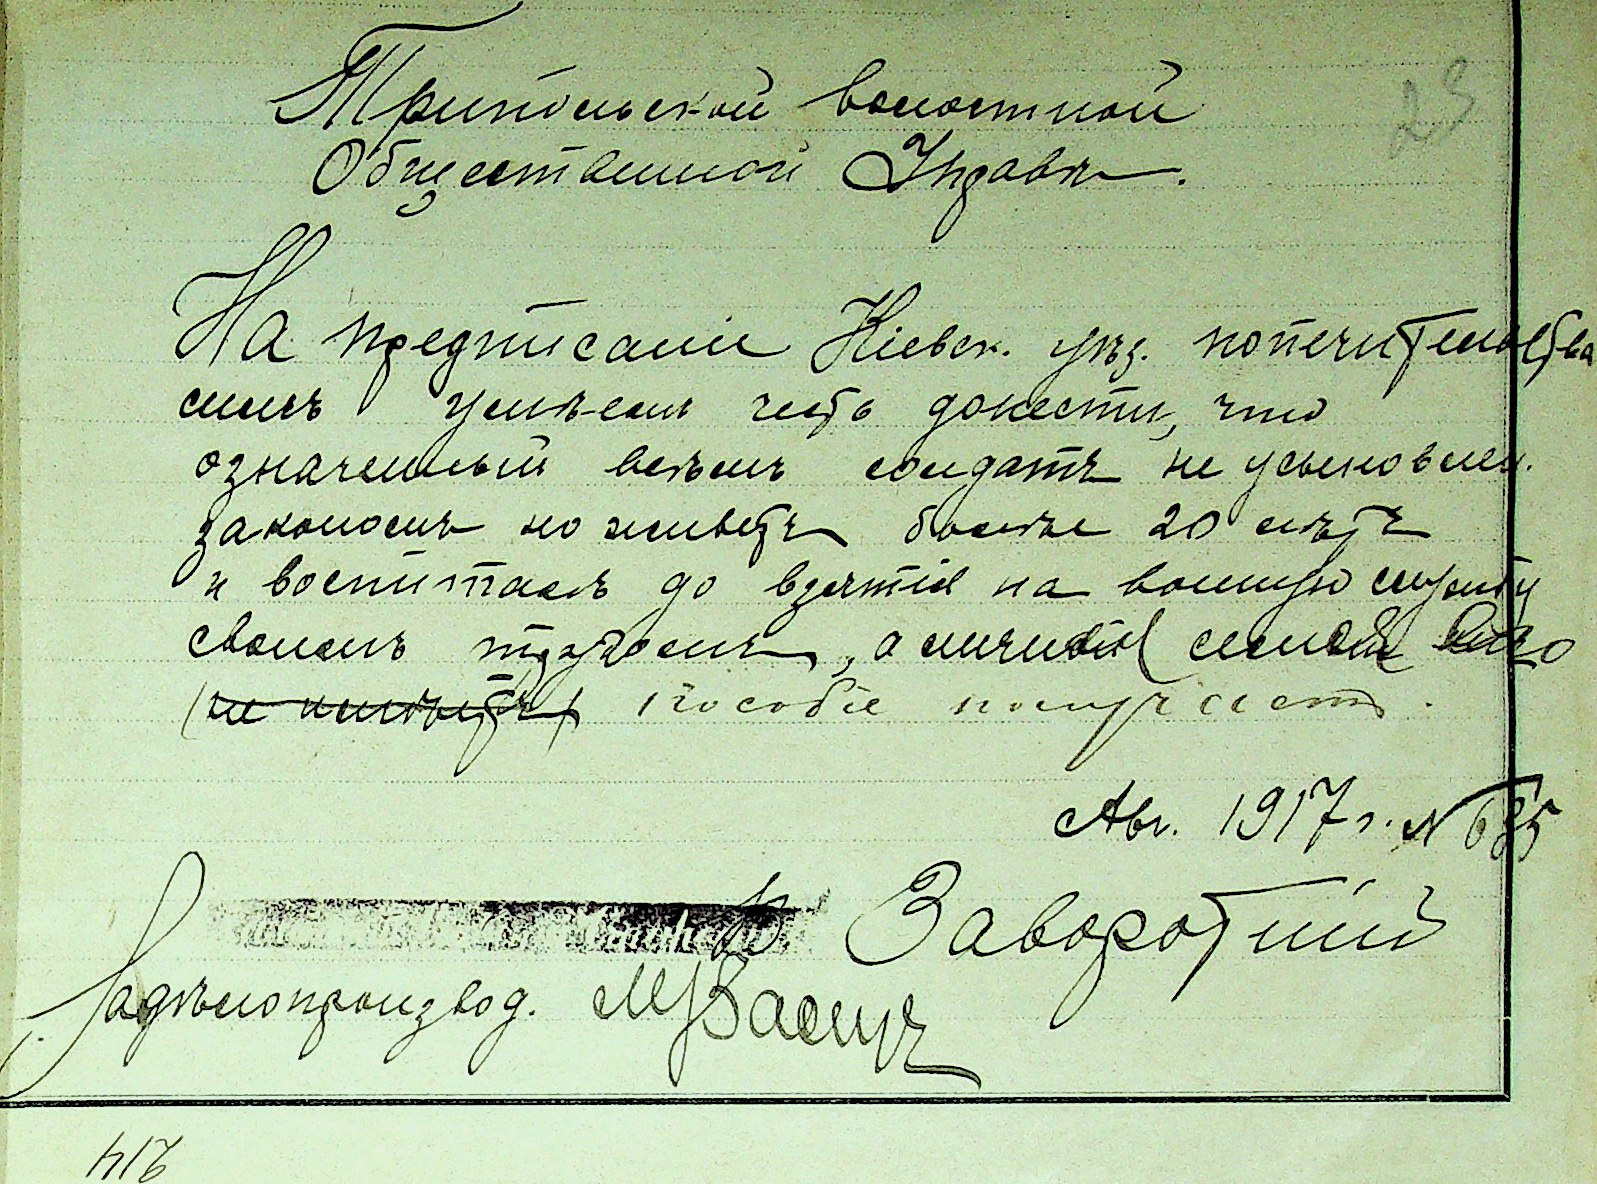 Трипольской волостной
Общественной Управѣ.
23
На предписаніе Кіевск. уѣз. попечительства
симъ имѣемъ честь донести, что
означенный всѣмъ солдатъ не усыновлен.
закономъ но живетъ болѣе 20 лѣтъ
и воспиталъ до взятія на военную службу
своимъ трудомъ, а
(не имѣетъ) пособіе получает.
Авг. 1917 г. № 685
Заворотній
За дѣлопроизвод. М
417